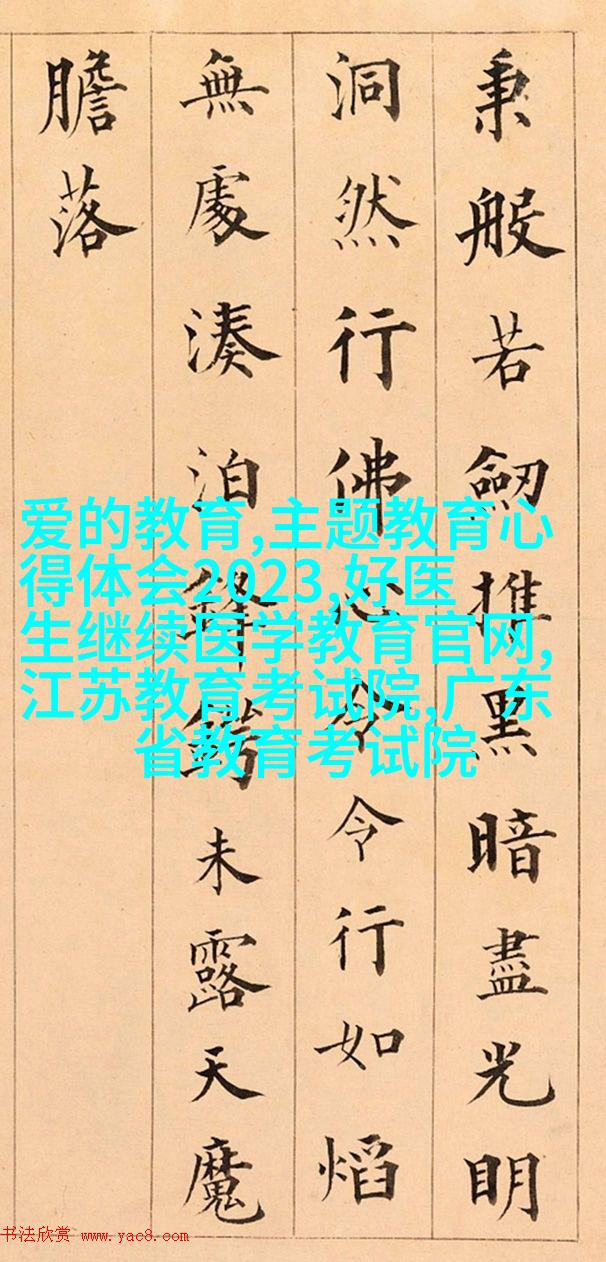 秉般若劔推黑暗盡光明
洞然行佛心令令行如熖
無處湊泊鋒鍔未露天魔
膽落
爱的教育,主题教育心
得体会2023,好医
生继续医学教育官网,
江苏教育考试院,广东
省教育考试院
书法欣赏 www.yac8.com